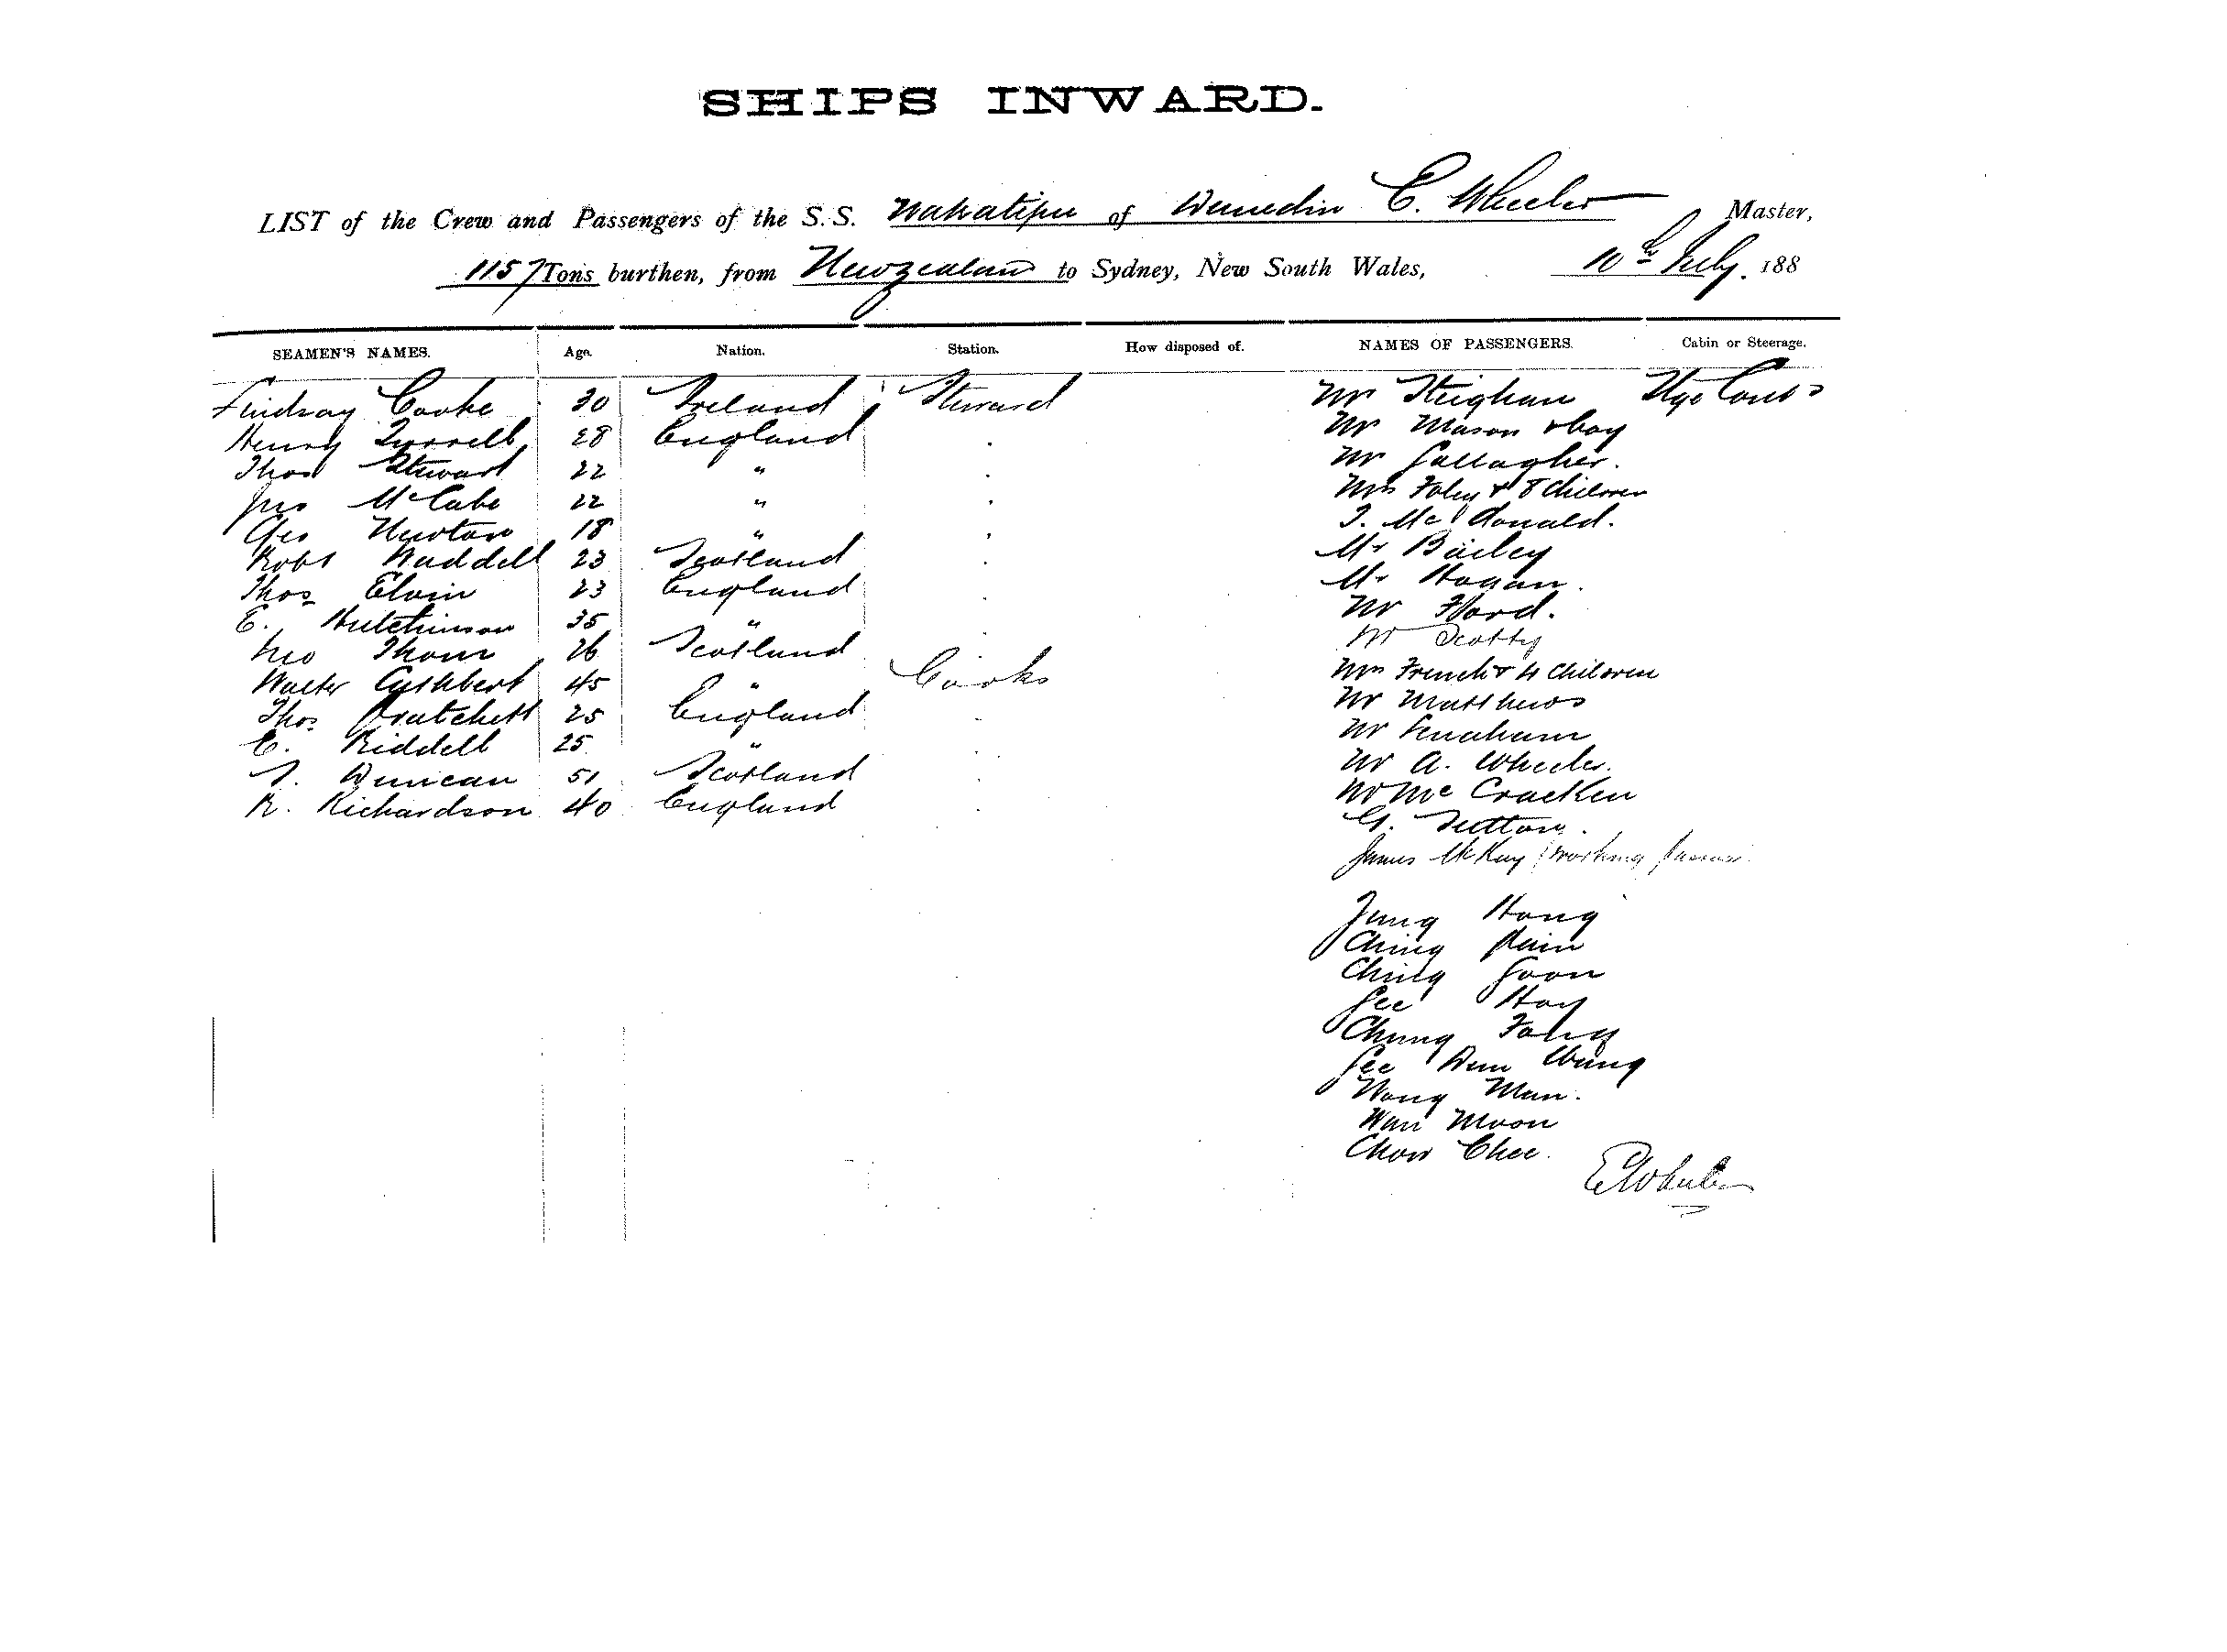 SHIPS INWARD.
LIST of the Crew and Passengers of the S.S. Wakatipu of Dunedin C. Wheeler Master,
1157 Tons burthen, from New Zealand to Sydney, New South Wales, 10th July. 188
SEAMEN'S NAMES. Age. Nation. Station. How disposed of. NAMES OF PASSENGERS. Cabin or Steerage.
Lindsay Cooke 30 Ireland Steward Mr
Henry Tyrrell 28 England Mr Mason & boy
Thos Stewart 22 " Mr Gallagher.
Jno McCabe 22 " Mrs Foley & 8 Children
Geo Newton 18 " J. McDonald.
Robt Waddell 23 Scotland Mr Bailey
Thos Elvin 23 England Mr Hogan.
E. Hutchinson 35 " Mr
Geo Thom 26 Scotland Mr Scotty
Walter Cuthbert 45 " Cooks Mrs French & 4 Children
Thos Pratchett 25 England Mr Matthews
C. Riddell 25 " Mr
J. Duncan 51 Scotland Mr A. Wheeler.
R. Richardson 40 England Mr McCracken
G. Sutton.
James McKay (working
Jung Hong
Ching
Ching Goon
Lee Hoy
Chung Fong
Lee Wun Chung
Wong Man.
Wan Moon
Chow Chee.
E Wheeler